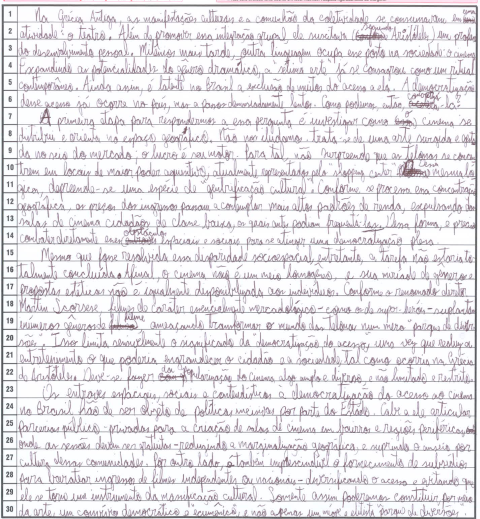 1 Na Grécia Antiga, as manifestações culturais e a comunhão da coletividade se consumavam em uma
2 atividade: o teatro. Além de promover essa integração grupal, ele suscitava, segundo Aristóteles, um processo
3 do desenvolvimento pessoal. Milênios mais tarde, outra linguagem ocupa esse posto na sociedade: o cinema.
4 Expandindo as potencialidades do gênero dramático, a sétima arte já se consagrou como um ritual
5 contemporâneo. Ainda assim, é latente no Brasil a exclusão de muitos do acesso a ela. A democratização
6 desse acesso já ocorre no país, mas a passos demasiadamente lentos. Como podemos, então, concretizá-la?
7 A primeira etapa para respondermos a essa pergunta é investigar como o cinema se
8 distribui e orienta no espaço geográfico. Não nos iludamos: trata-se de uma arte surgida e gestada
9 no seio do mercado; o lucro é seu motor. Para tal, não surpreende que as telonas se concentrem
10 em locais de maior poder aquisitivo, atualmente representados pelo shopping center. Com essa
11 depreende-se uma espécie de gentrificação cultural. Conforme se processa essa concentração
12 geográfica, os preços dos ingressos passam a contemplar mais altos padrões de renda, expulsando das
13 salas de cinema cidadãos de classe baixa, os quais antes podiam frequentá-las. Dessa forma, é preciso
14 contrabalancear esses obstáculos espaciais e sociais para se atingir uma democratização plena.
15 Mesmo que fosse resolvida essa disparidade socioespacial, entretanto, a tarefa não estaria to-
16 talmente concluída. Afinal, o cinema não é um meio homogêneo, e sua miríade de gêneros e
17 propostas estéticas não é igualmente disponibilizada aos indivíduos. Conforme o renomado diretor
18 Martin Scorsese, filmes de caráter essencialmente mercadológico - como os de super-heróis - suplantam
19 inúmeros gêneros de filme, ameaçando transformar o mundo das telonas num mero "parque de diver-
20 sões". Isso limita sensivelmente o significado da democratização do acesso, uma vez que reduz a
21 entretenimento o que poderia engrandecer o cidadão e a sociedade, tal como ocorria na Grécia
22 de Aristóteles. Deve-se fazer da popularização do cinema algo amplo e diverso, e não limitado e restrito.
23 Os entraves espaciais, sociais e conteudísticos à democratização do acesso ao cinema
24 no Brasil hão de ser objeto de políticas massivas por parte do Estado. Cabe a ele articular
25 parcerias público-privadas para a criação de salas de cinema em bairros e regiões periféricas,
26 onde as sessões devem ser gratuitas - reduzindo a marginalização geográfica, e suprindo o anseio por
27 cultura dessas comunidades. Por outro lado, é também imprescindível o fornecimento de subsídios
28 para baratear ingressos de filmes independentes ou nacionais - diversificando o acesso e evitando que
29 ele se torne um instrumento da massificação cultural. Somente assim poderemos constituir, por meio
30 da arte, um convívio democrático e ecumênico, e não apenas um mero e elitista parque de diversões.